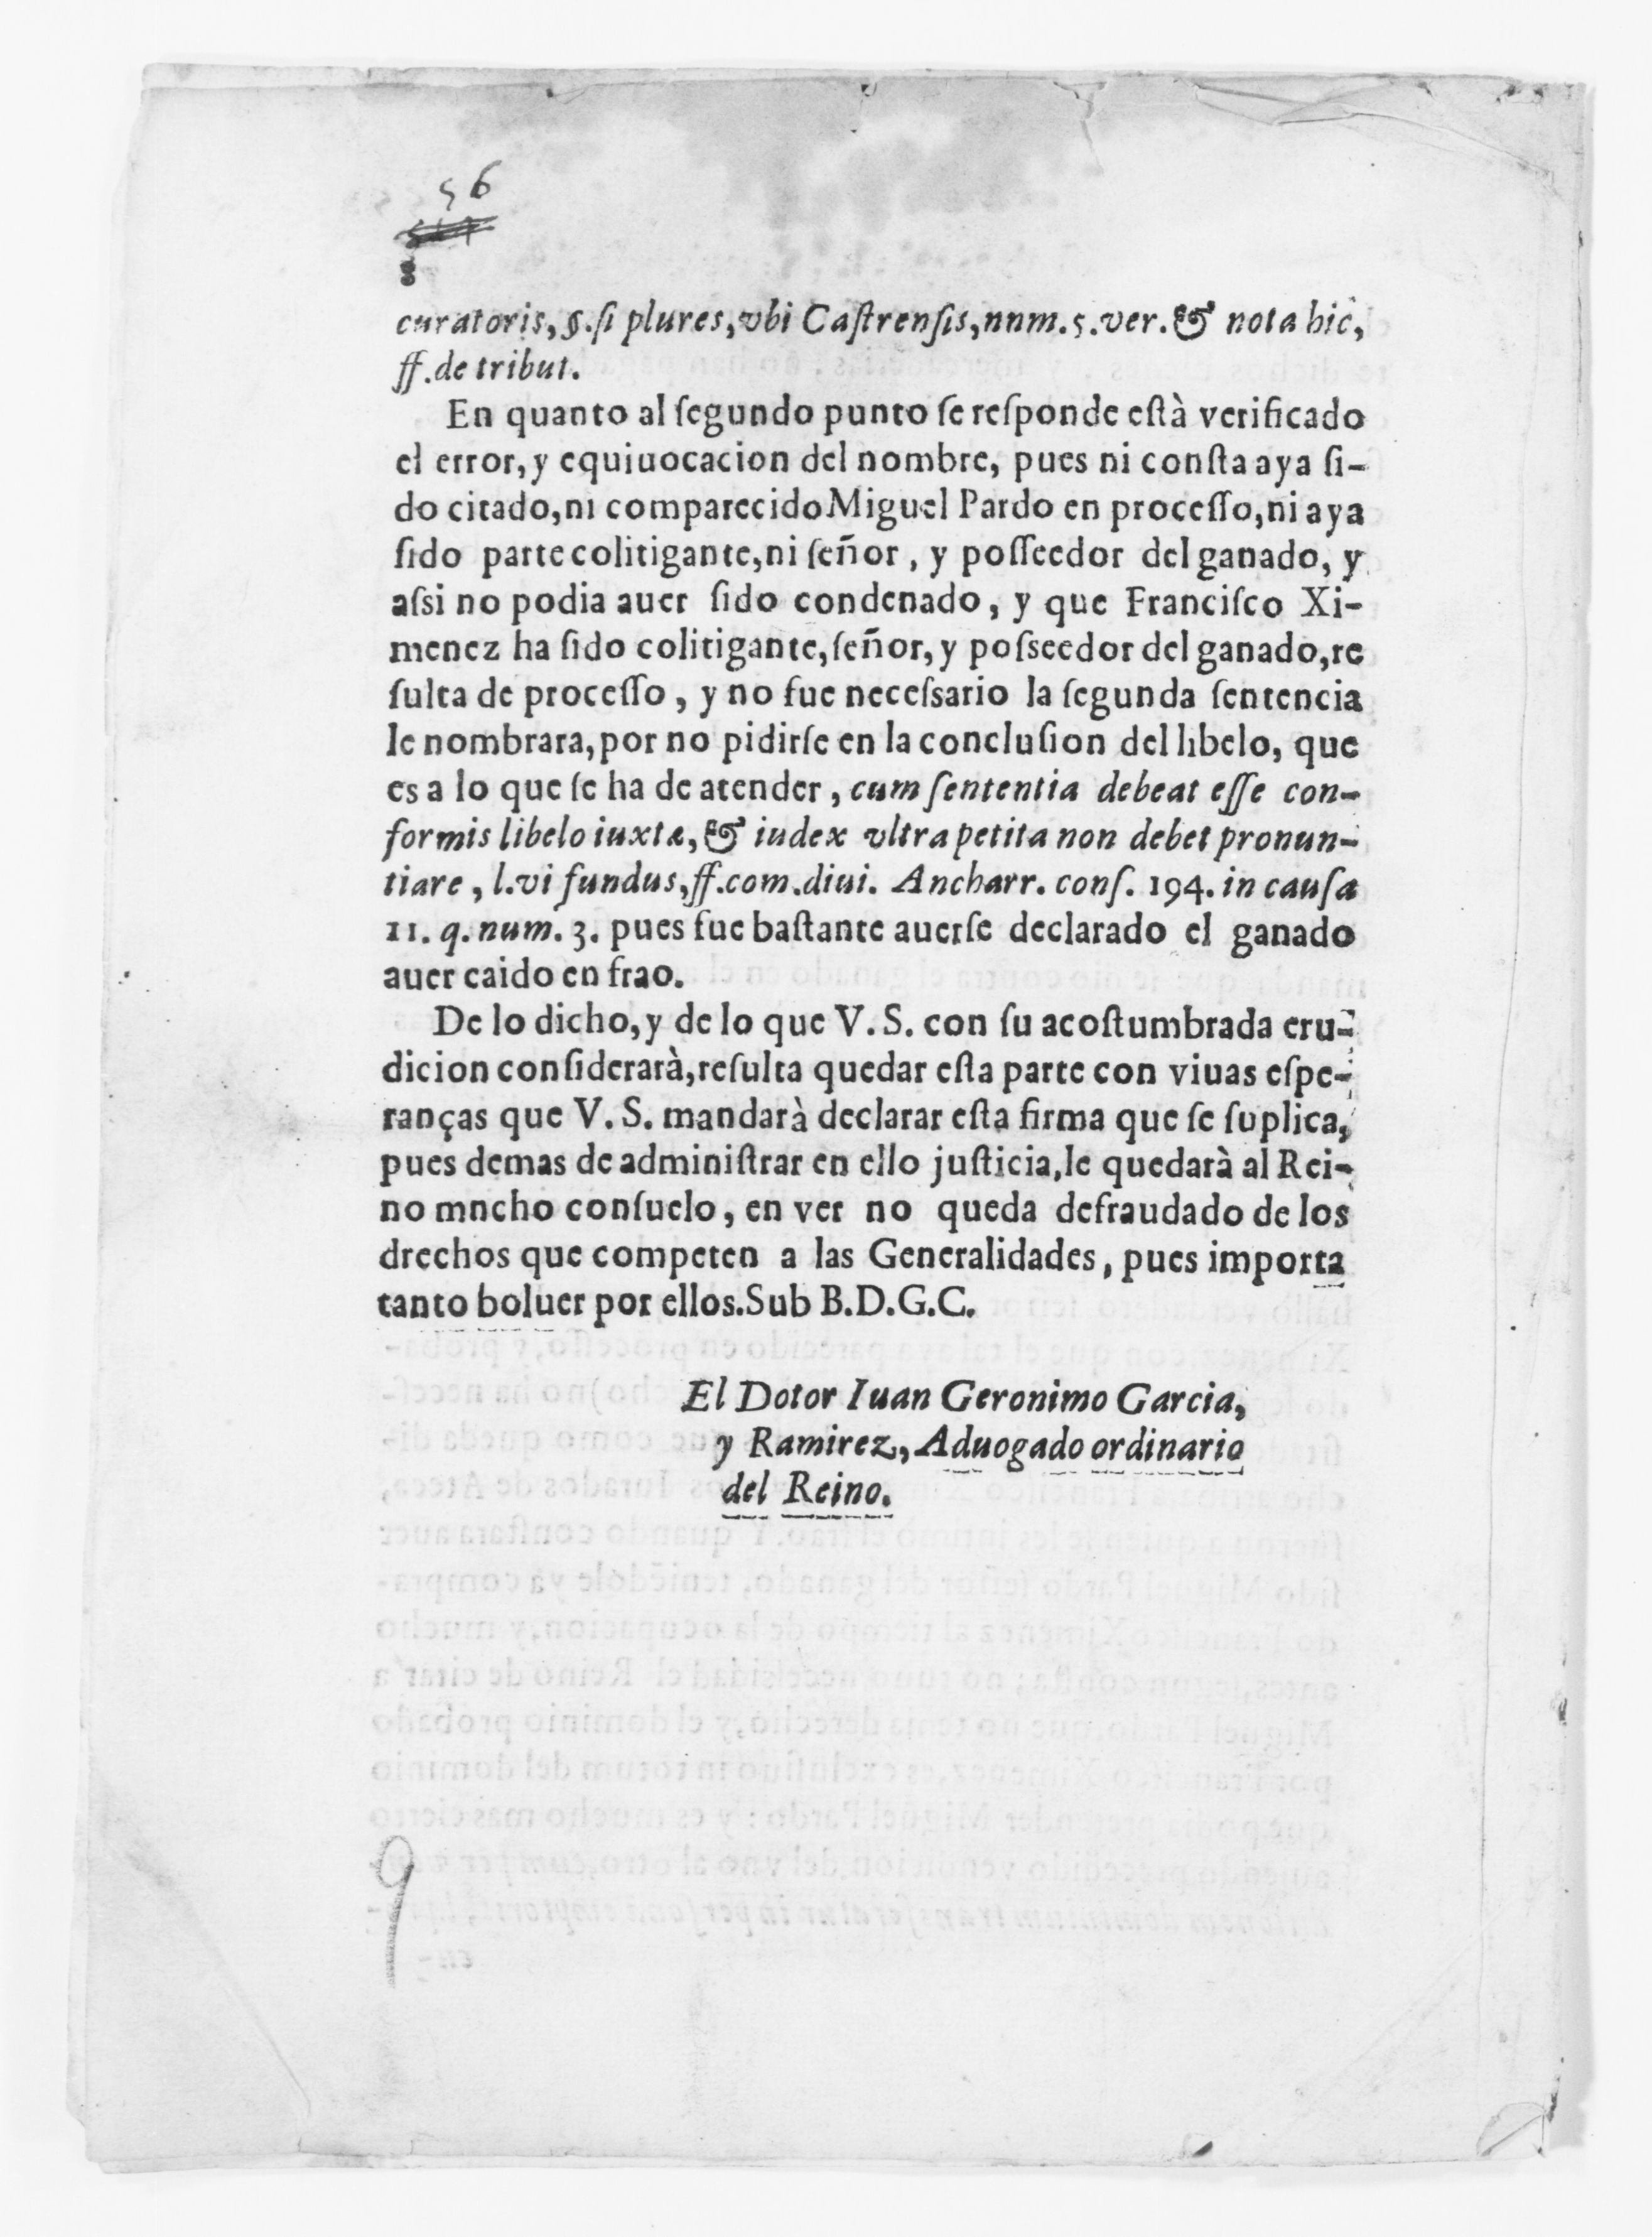 56
8
curatoris, §. ſi plures, vbi Caſtrenſis, nnm. 5. ver. & nota hic,
ff. de tribut.
En quanto al ſegundo punto ſe reſponde eſtà verificado
el error, y equiuocacion del nombre, pues ni conſta aya ſi-
do citado, ni comparecido Miguel Pardo en proceſſo, ni aya
ſido parte colitigante, ni ſeñor, y poſſeedor del ganado, y
aſsi no podia auer ſido condenado, y que Franciſco Xi-
menez ha ſido colitigante, ſeñor, y poſseedor del ganado, re
ſulta de proceſſo, y no fue neceſsario la ſegunda ſentencia
le nombrara, por no pidirſe en la concluſion del libelo, que
es a lo que ſe ha de atender, cum ſententia debeat eſſe con-
formis libelo iuxta, & iudex vltra petita non debet pronun-
tiare, l. vi fundus, ff. com. diui. Ancharr. conſ. 194. in cauſa
11. q. num. 3. pues fue baſtante auerſe declarado el ganado
auer caido en frao.
De lo dicho, y de lo que V. S. con ſu acoſtumbrada eru-
dicion conſiderarà, reſulta quedar eſta parte con viuas eſpe-
ranças que V. S. mandarà declarar eſta firma que ſe ſuplica,
pues demas de adminiſtrar en ello juſticia, le quedarà al Rei-
no mncho conſuelo, en ver no queda defraudado de los
drechos que competen a las Generalidades, pues importa
tanto boluer por ellos. Sub B. D. G. C.
El Dotor Iuan Geronimo Garcia,
y Ramirez, Aduogado ordinario
del Reino.
9